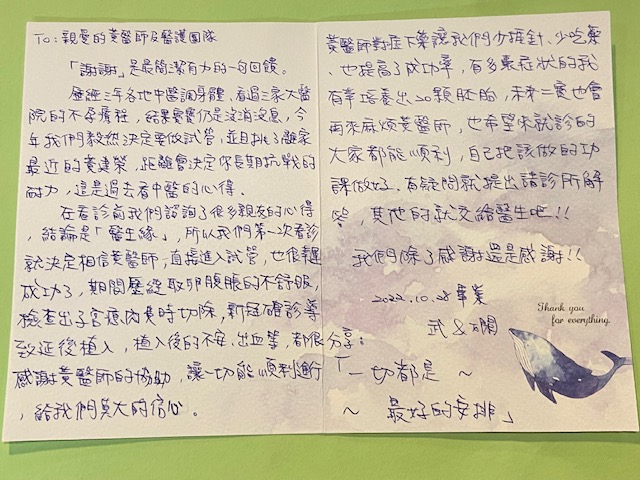 To：親愛的黃醫師及醫護團隊
「謝謝」是最簡潔有力的一句回饋。
歷經三年各地中醫調身體、看過三家大醫
院的不孕療程，結果寶寶仍是沒消沒息，今
年我們毅然決定要做試管，並且挑了離家
最近的黃建榮，距離會決定你長期抗戰的
耐力，這是過去看中醫的心得。
在看診前我們諮詢了很多親友的心得
，結論是「醫生緣」，所以我們第一次看診
就決定相信黃醫師，直接進入試管，也很幸運
成功了，期間歷經取卵腹脹的不舒服，
檢查出子宮瘜肉長時切除，新冠確診導
致延後植入，植入後的不安、出血等，都很
感謝黃醫師的協助，讓一切能順利進行
，給我們莫大的信心。
黃醫師對症下藥讓我們少挨針、少吃藥
、也提高了成功率，有多囊症狀的我
有幸培養出20顆胚胎，未來二寶也會
再來麻煩黃醫師，也希望來就診的
大家都能順利，自己把該做的功
課做好，有疑問就提出請診所解
答，其他的就交給醫生吧!!
我們除了感謝還是感謝!!
2022.10.28 畢業
武&嫻
分享：
「一切都是～
～最好的安排」
Thank you
for everything.